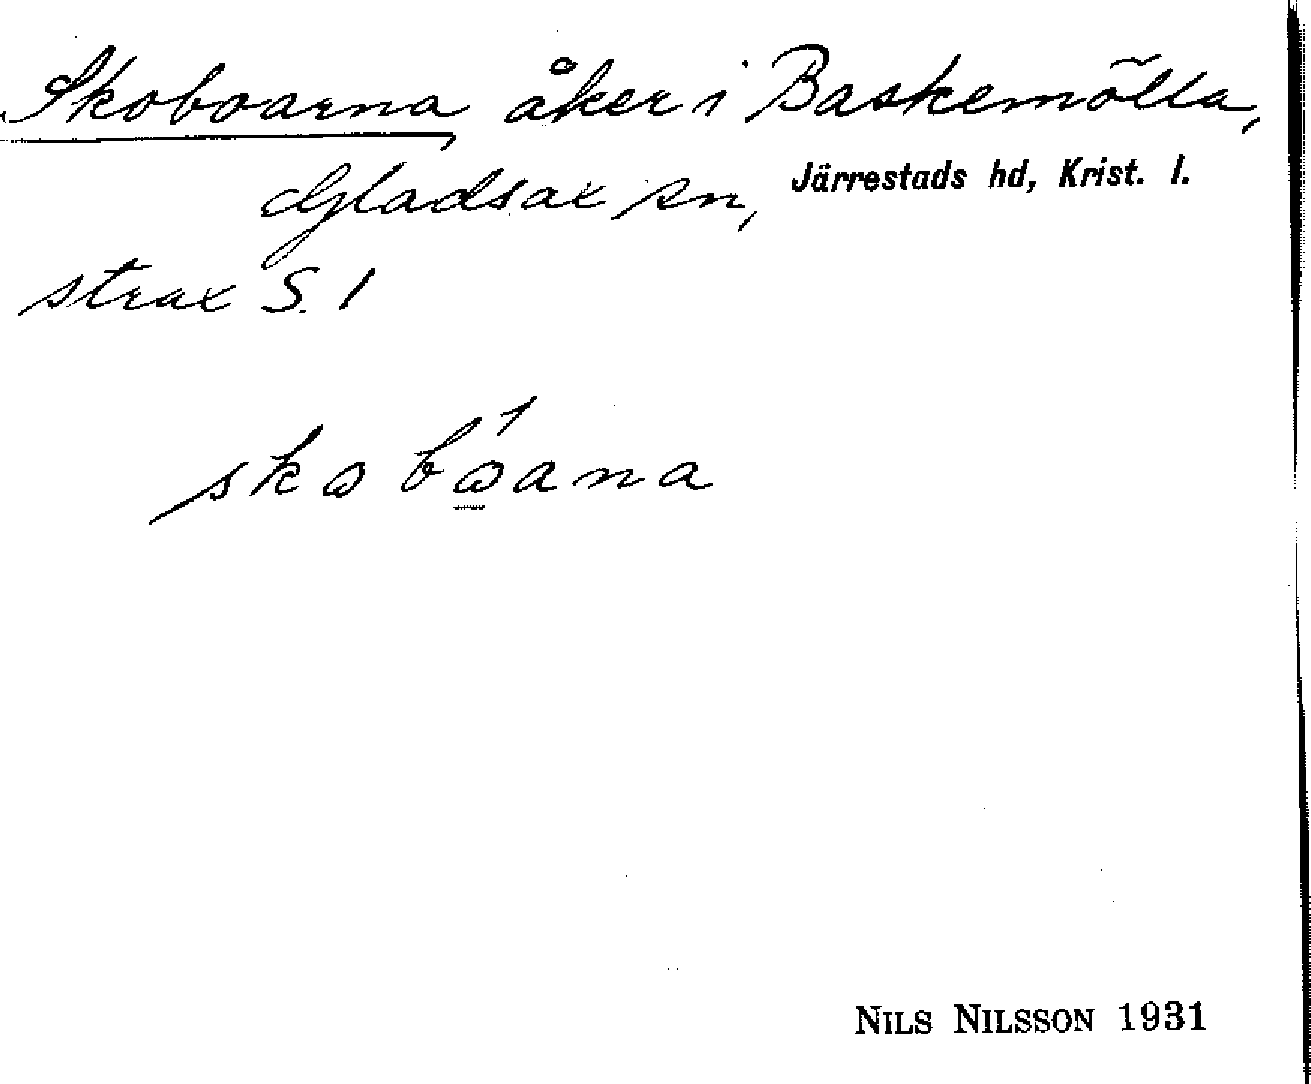 Skoboarna, åker i Baskemölla,
Gladsax sn, Järrestads hd, Krist. l.
strax S. 1
skobóana
NILS NILSSON 1931